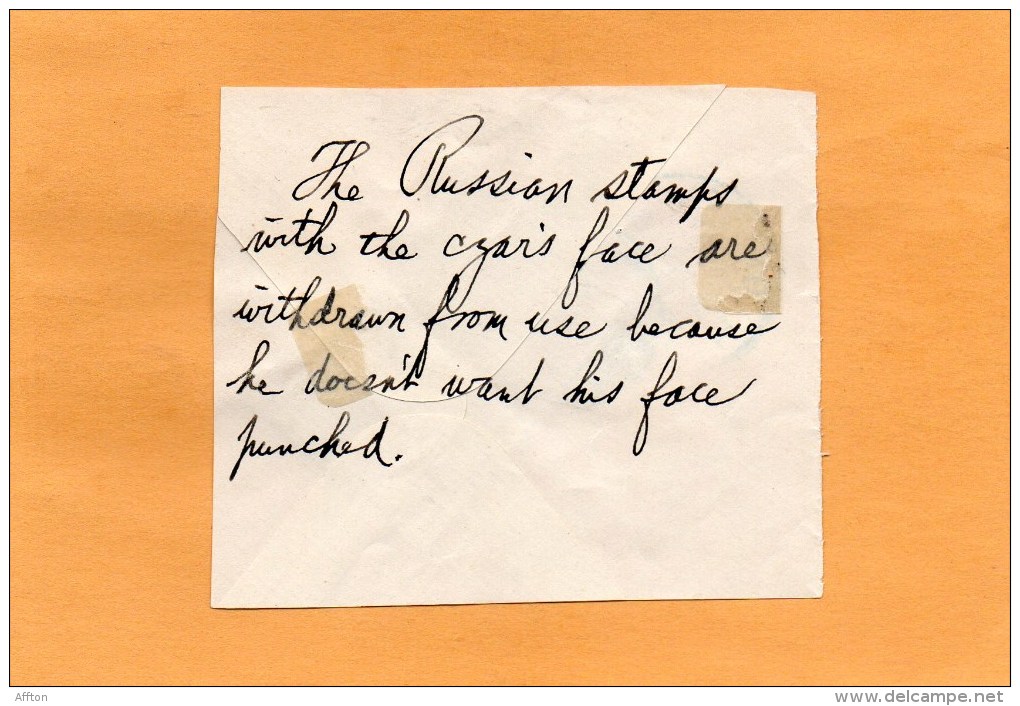 The Russian stamps
with the czar's face are
withdrawn from use because
he doesn't want his face
punched.
Affton
www.delcampe.net